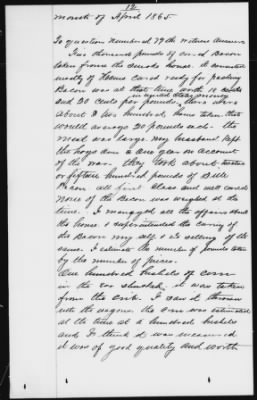 12
month of April 1865.
To question numbered 79th witness answers
Two thousand pounds of cured Bacon
taken from the smoke house. It consisted
mostly of Hams cared ready for packing
Bacon was at that time worth 18
and 20 cents per pounds, there were
about 2 two hundred hams taken that
would average 20 pounds each. the
meat was large. My husband kept
the hogs over a one year on account
of the war. they took about twelve
or fifteen hundred pounds of Side
Bacon all first class and well cured
None of the Bacon was weighed at the
time. I managed all the affairs about
the house & superintended the curing of
the Bacon my self, & the selling of the
same. I estimate the number of pounds taken
by the number of pieces.
One hundred bushels of corn
in the ear shucked, it was taken
from the crib. I saw it thrown
into the wagons. the corn was estimated
at the time at a hundred bushels
and I think it was measured
it was of good quality and worth